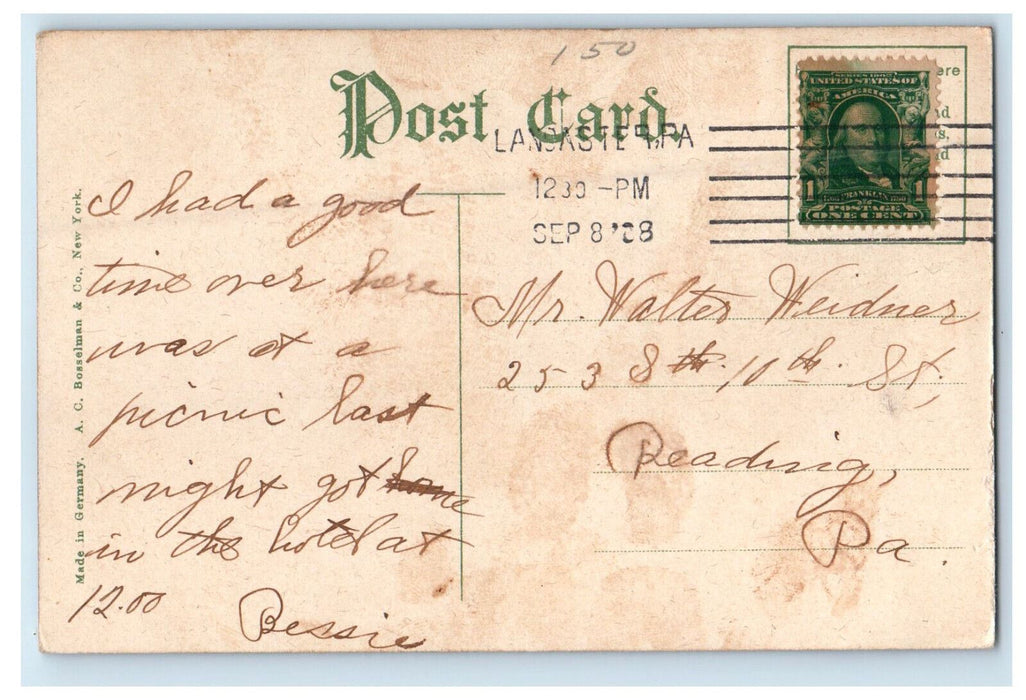 150
Post Card.
ere
nd
s,
d
SERIES 1902
UNITED STATES OF
AMERICA
FRANKLIN
1 POSTAGE 1
ONE CENT
LANCASTER, PA
1230 -PM
SEP 8 '08
Made in Germany. A. C. Bosselman & Co., New York.
I had a good
time over here
was at a
picnic last
night got home
in the hotel at
12.00
Bessie
Mr. Walter Weidner
253 S th. 10 th. St.
Reading,
Pa.